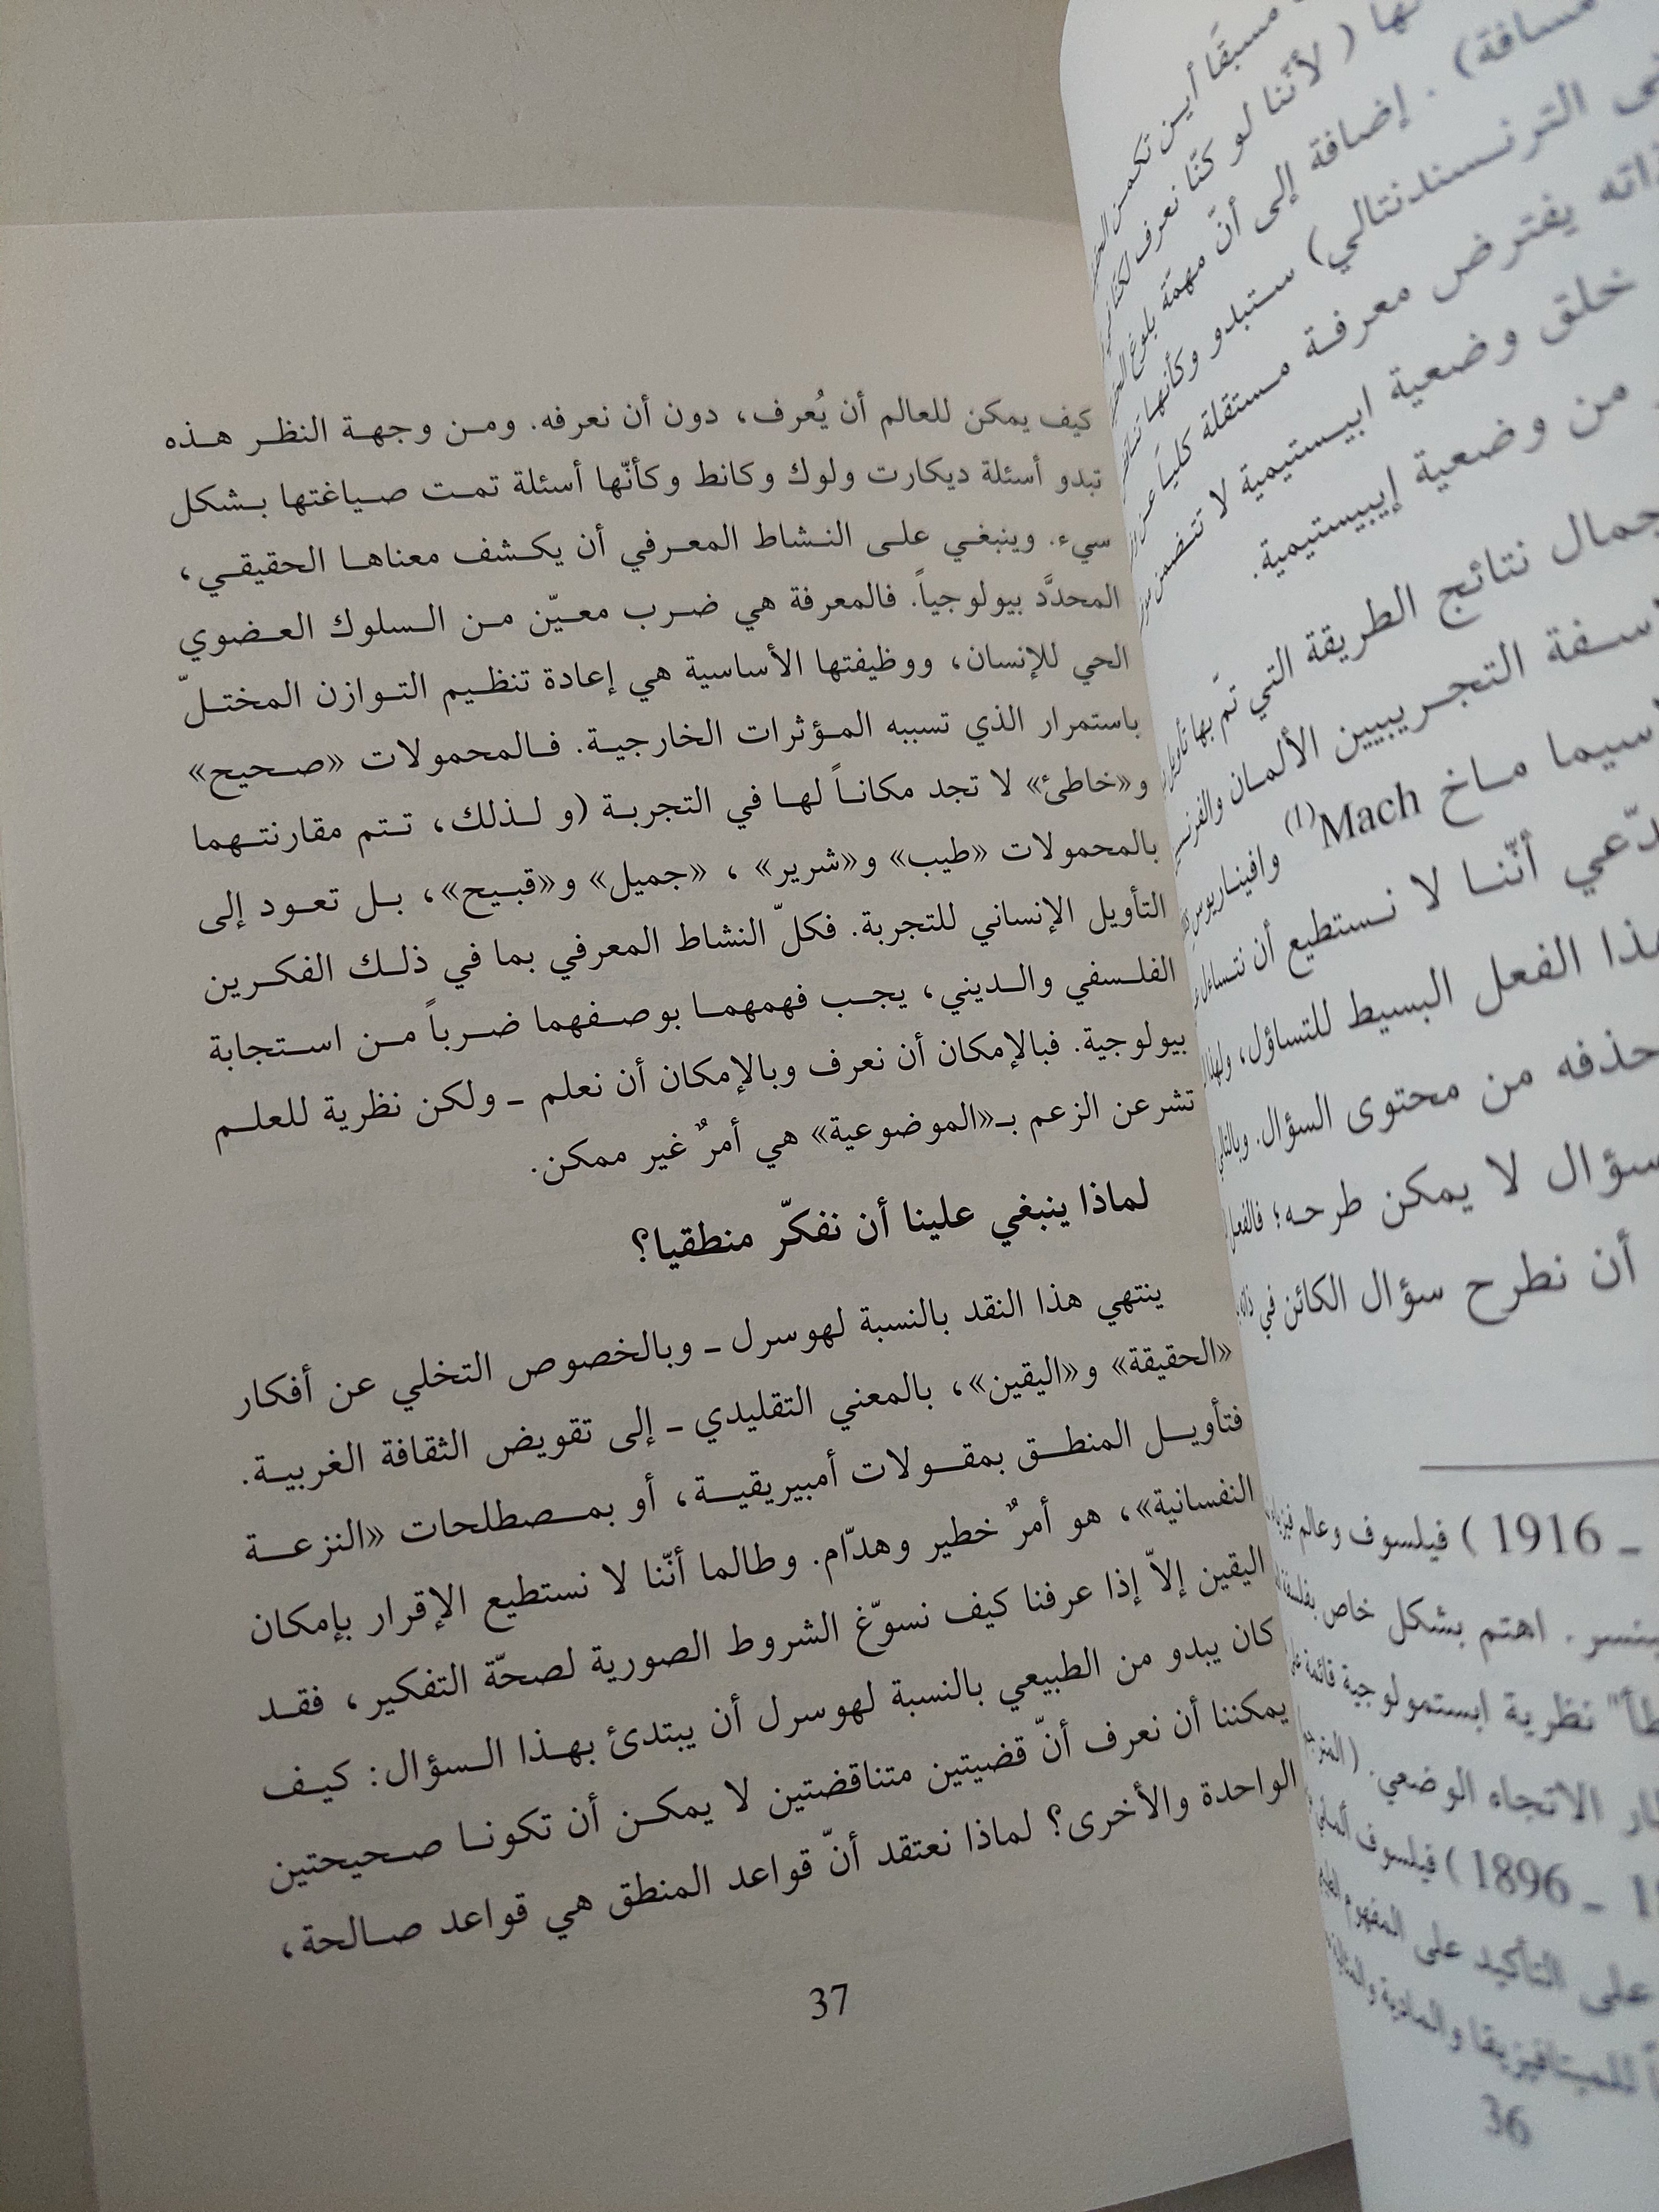 كيف يمكن للعالم أن يُعرف، دون أن نعرفه. ومـن وجهـة النظـر هـذه
تبدو أسئلة ديكارت ولوك وكانط وكأنّها أسئلة تمـت صـياغتها بـشكل
سيء. وينبغـي علـى النـشاط المعـرفي أن يكـشف معناهـا الحقيقـي،
المحدَّد بيولوجياً. فالمعرفة هي ضـرب معـيّن مـن الـسلوك العـضوي
الحي للإنسان، ووظيفتها الأساسية هي إعادة تنظـيم التـوازن المختـلّ
باستمرار الذي تسببه المـؤثرات الخارجيـة. فـالمحمولات «صـحيح»
و«خاطئ» لا تجد مكانـاً لهـا في التجربـة (و لـذلك، تـتم مقارنتـهما
بالمحمولات «طيب» و«شرير» ، «جميل» و«قبـيح»، بـل تعـود إلى
التأويل الإنساني للتجربة. فكلّ النشاط المعرفي بما في ذلـك الفكـرين
الفلـسفي والـديني، يجـب فهمهمـا بوصـفهما ضـرباً مـن اسـتجابة
بيولوجية. فبالإمكان أن نعرف وبالإمكان أن نعلم ـ ولكن نظرية للعلـم
تشرعن الزعم بـ«الموضوعية» هي أمرٌ غير ممكن.
لماذا ينبغي علينا أن نفكّر منطقيا؟
ينتهي هذا النقد بالنسبة لهوسرل ـ وبالخصوص التخلي عن أفكار
«الحقيقة» و«اليقين»، بالمعني التقليدي ـ إلى تقويض الثقافة الغربيـة.
فتأويـل المنطـق بمقـولات أمبيريقيـة، أو بمـصطلحات «النزعـة
النفسانية»، هو أمرٌ خطير وهدّام. وطالما أنّنا لا نستطيع الإقرار بإمكان
اليقين إلاّ إذا عرفنا كيف نسوّغ الشروط الصورية لصحّة التفكير، فقـد
كان يبدو من الطبيعي بالنسبة لهوسرل أن يبتدئ بهـذا الـسؤال: كيـف
يمكننا أن نعرف أنّ قضيتين متناقضتين لا يمكـن أن تكونـا صـحيحتين
الواحدة والأخرى؟ لماذا نعتقد أنّ قواعد المنطق هي قواعد صـالحة،
37
مسبقًا أيـن تكمـن
( لأنّنا لو كنّا نعرف
مسافة) . إضافة إلى أنّ مهمّة بلوغ
الترنـسندنتالي) ستبدو وكأنهـا
يفترض معرفـة مـستقلة كليـاً
خلق وضعية ابيـستيمية لا تتـضمن
من وضعية إيبيستيمية.
نتائج الطريقة التي تمّ بها
التجـريبيين الألمـان
مـاخ Mach(1) وافينـاريوس
أنّنـا لا نـستطيع أن نتـساءل
الفعل البسيط للتساؤل،
حذفه من محتوى السؤال.
لا يمكن طرحـه؛
أن نطرح سؤال الكائن في
ـ 1916 ) فيلسوف وعالم
. اهتم بشكل خاص
نظرية ابستمولوجية قائمة
الاتجاه الوضعي.
ـ 1896 ) فيلسوف ألماني
على التأكيد على المفهوم
للميتافيزيقا والمادية
36